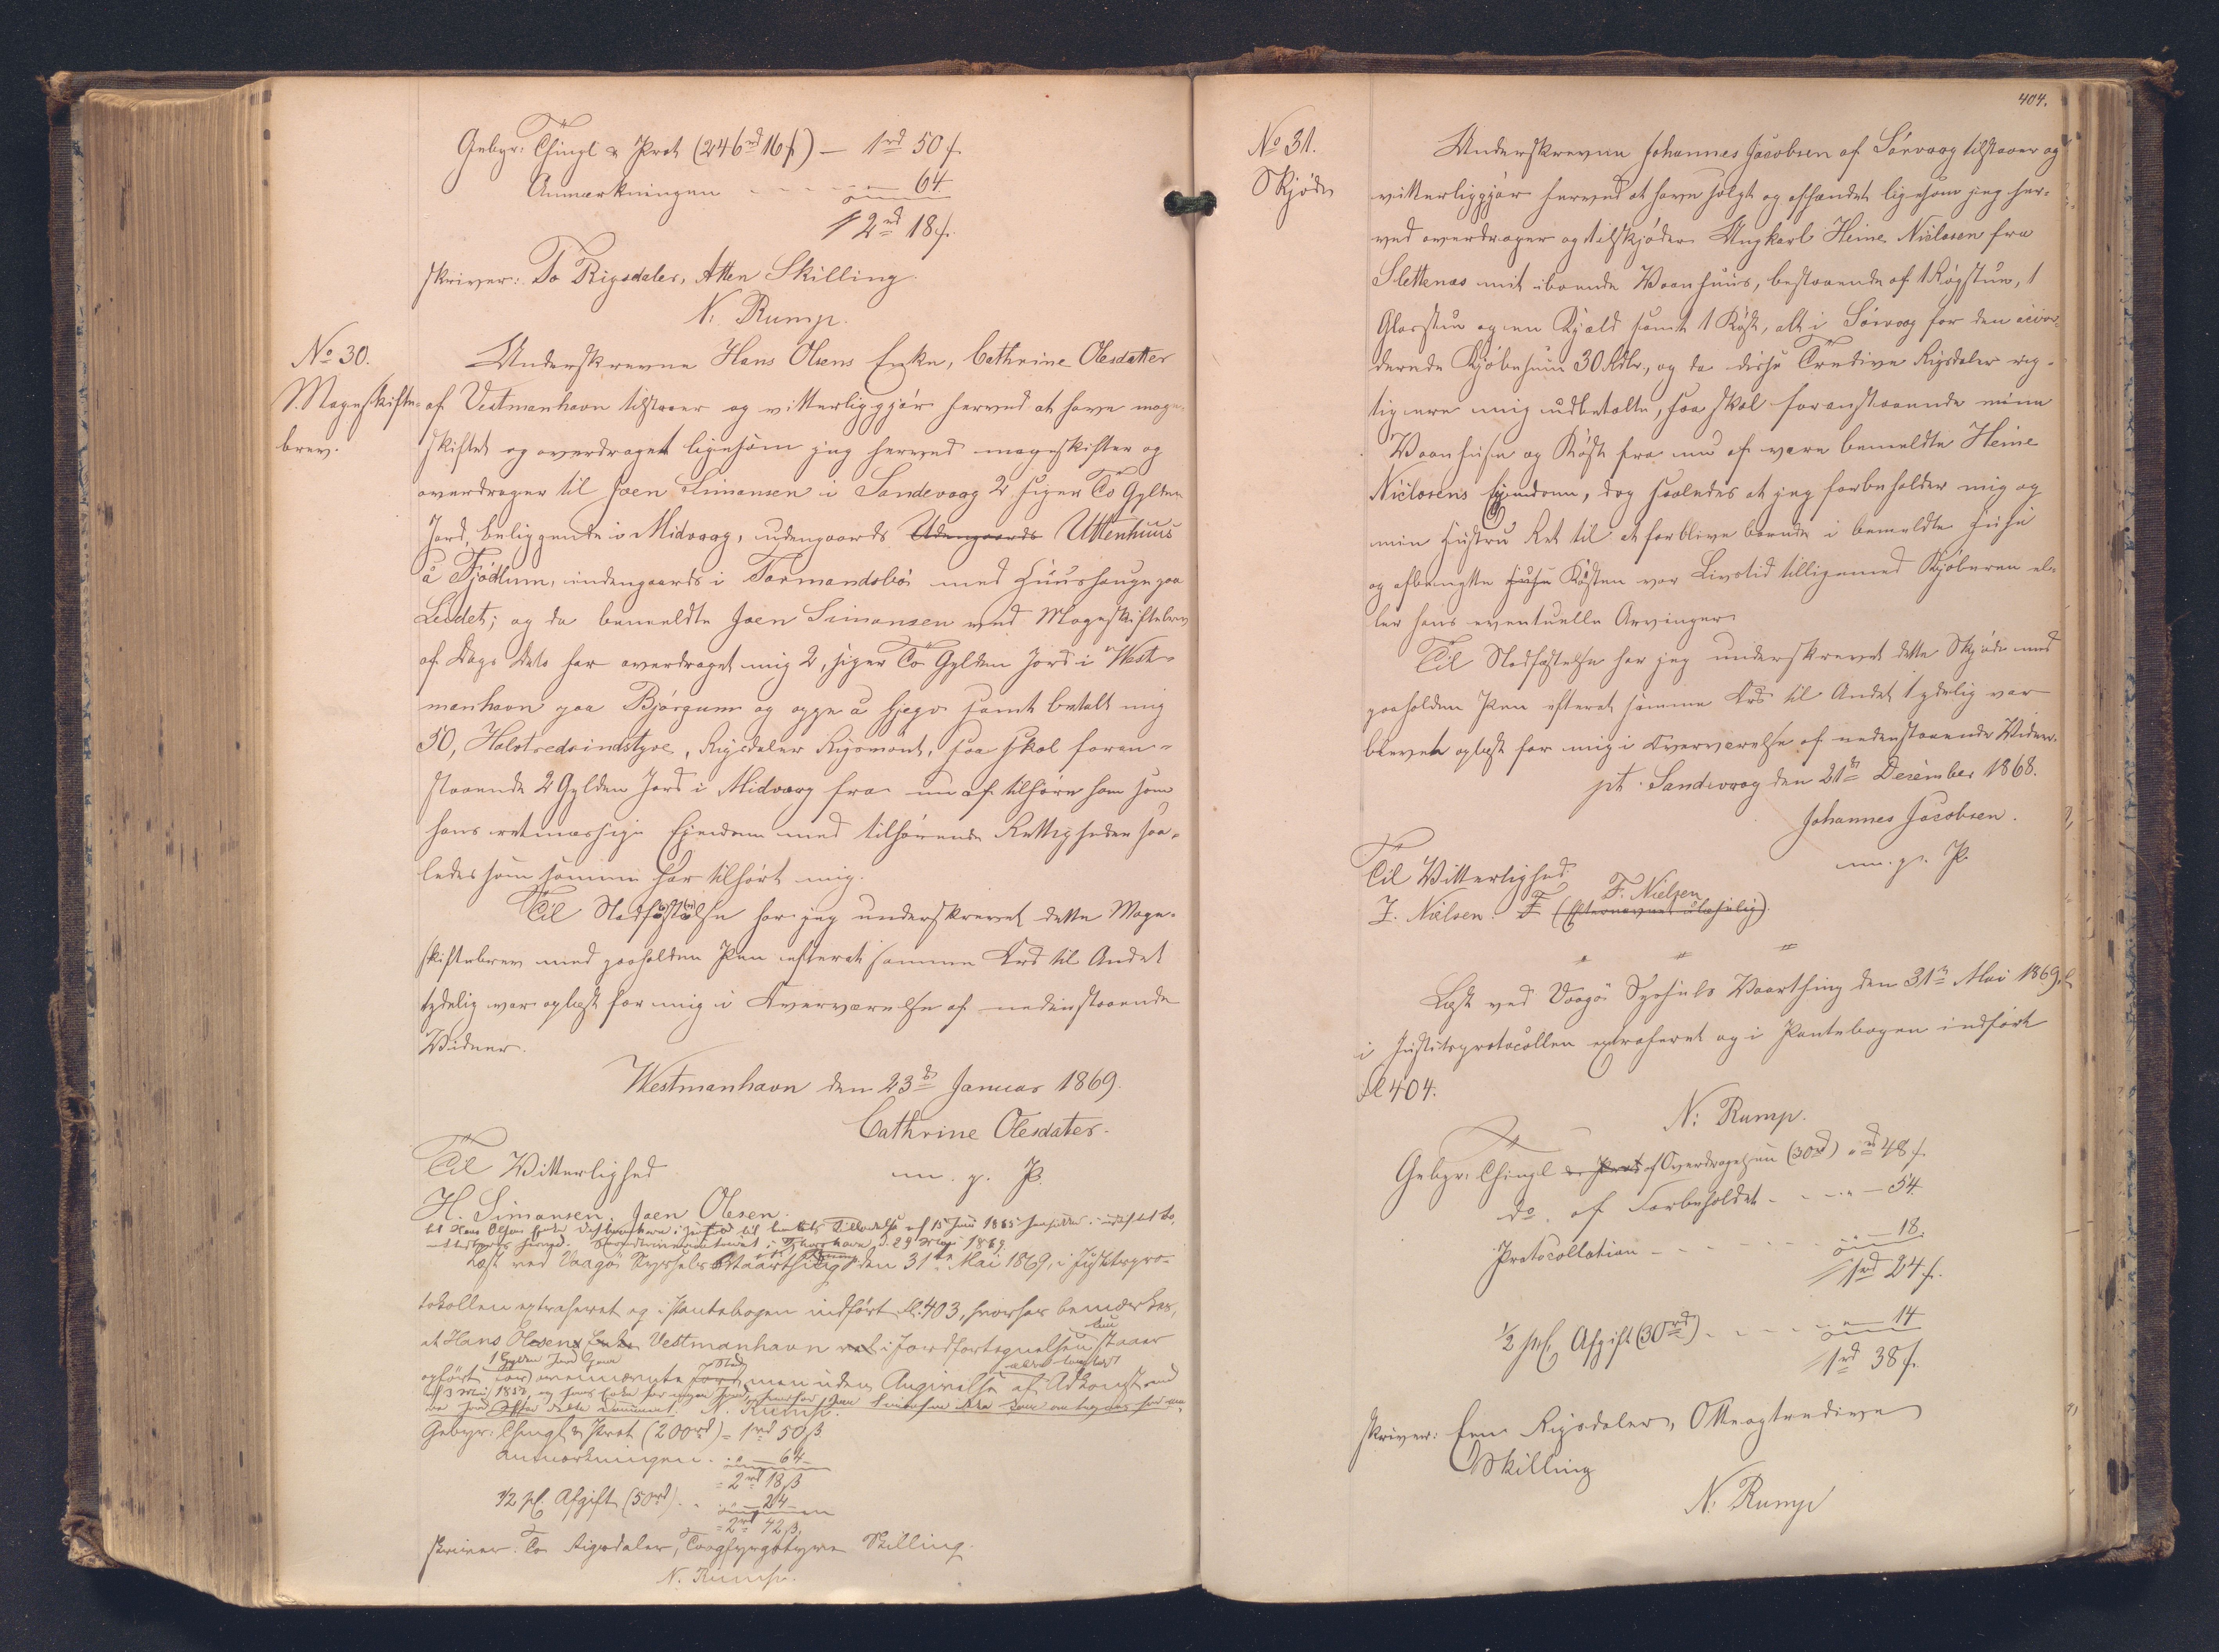 Gebyr: Thingl & Prot (246rd 16ß) — 1rd 50ß.
Anmærkningen - - - - - — 64.
2rd 18ß.
skriver: To Rigsdaler, Atten Skilling.
N: Rump.
No 30.
Mageskifte-
brev.
Underskrevne Hans Olsens Enke, Cathrine Olesdatter
af Vestmanhavn tilstaaer og vitterliggjør herved at have mage-
skiftet og overdraget ligesom jeg herved mageskifter og
overdrager til Joen Simonsen i Sandevaag 2 siger To Gylden
Jord, beliggende i Midvaag, udengaards Udengaards Uttenhuus
å Fjødlum, indengaards i Tormandsbø med Huushauge paa
Leidet; og da bemeldte Joen Simonsen ved Mageskiftebrev
af Dags Dato har overdraget mig 2, siger To Gylden Jord i West-
manhavn paa Bjørgum og oppe å Gjegv samt betalt mig
50, Halvtredsindstyve, Rigsdaler Rigsmønt, saa skal foran-
staaende 2 Gylden Jord i Midvaag fra nu af tilhøre ham som
hans retmæssige Ejendom med tilhørende Rettigheder saa-
ledes som samme har tilhørt mig.
Til Stadfæstelse har jeg underskrevet dette Mage-
skiftebrev med paaholden Pen efterat samme Ord til Andet
tydelig var oplæst for mig i Overværelse af nedenstaaende
Vidner.
Westmanhavn den 23de Januar 1869.
Cathrine Olesdater.
m. p. P.
Til Vitterlighed
H. Simonsen. Joen Olesen.
Læst ved Vaagø Syssels Vaarthing den 31te Mai 1869, i Justitspro-
tokollen extraheret og i Pantebogen indført fol. 403, hvorhos bemærkes,
at Hans Olesens Enke Vestmanhavn i Jordfortegnelsen staaer
opført for ovennævnte Jord men uden Angivelse af Adkomst
N. Rump.
Gebyr: Thingl & Prot (200rd) = 1rd 50ß
Anmærkningen - — 64 -
= 2rd 18ß
1/2 pC. Afgift (50rd) - — 24 -
= 2rd 42ß.
skriver: To Rigsdaler, Toogfyrgetyve Skilling.
N. Rump.
404.
No 31.
Skjøde
Underskrevne Johannes Jacobsen af Sørvaag tilstaaer og
vitterliggjør herved at have solgt og afhændet ligesom jeg her-
ved overdrager og tilskjøder Ungkarl Heine Niclasen fra
Slettenæs mit iboende Vaanhuus, bestaaende af 1 Røgstue, 1
Glasstue og en Kjæld samt 1 Køst, alt i Sørvaag for den accor-
derede Kjøbesum 30 Rdlr., og da disse Tredive Rigsdaler rig-
tig ere mig udbetalte, saa skal foranstaaende mine
Vaanhuse og Køst fra nu af være bemeldte Heine
Niclasens Ejendom, dog saaledes at jeg forbeholder mig og
min Hustru Ret til at forblive boende i bemeldte Huse
og afbenytte Huse Køsten vor Livstid tilligemed Kjøberen el-
ler hans eventuelle Arvinger
Til Stadfæstelse har jeg underskrevet dette Skjøde med
paaholden Pen efterat samme Ord til Andet tydelig var
blevet oplæst for mig i Overværelse af nedenstaaende Vidner.
pt. Sandevaag den 21de December 1868.
Johannes Jacobsen.
m. p. P.
Til Vitterlighed
F. Nielsen
Z. Nielsen. F. (Efternavnet ulæselig).
Læst ved Vaagø Syssels Vaarthing den 31te Mai 1869,
i Justitsprotocollen extraheret og i Pantebogen indført
fol 404.
N: Rump.
Gebyr: Thingl & Prot af Overdragelsen (30rd) " rd 48ß.
do. af Forbeholdet - - - " — 54.
Protocollation - - - - - 18.
1rd 24ß.
1/2 pC. Afgift (30rd) - - - " — 14
1rd 38ß.
skriver: Een Rigsdaler, Otteogtredive
Skilling
N: Rump